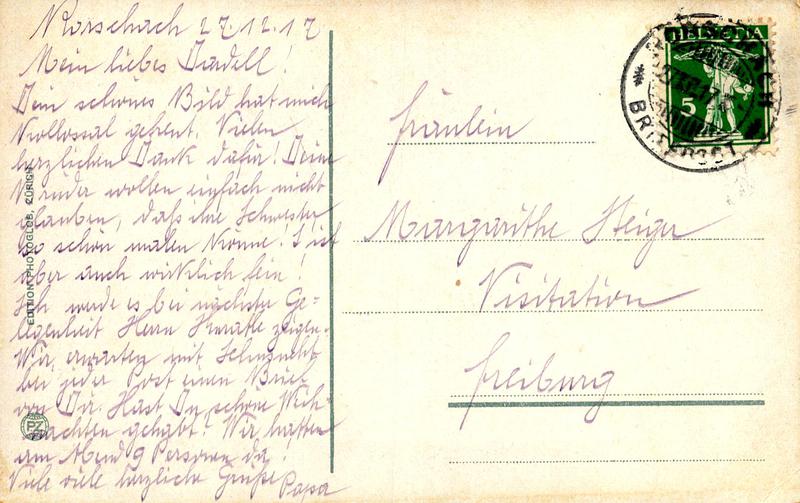 Rorschach 27.12.17
Mein liebes Dadell!
Dein schönes Bild hat mich
Kollossal gefreut. Vielen
herzlichen Dank dafür! Deine
Brüder wollen einfach nicht
glauben, daß ihre Schwester
so schön malen könne! S'ist
aber auch wirklich fein!
Ich werde es bei nächster Ge-
legenheit Herrn zeigen.
Wir erwarten mit Sehnsucht
bei jeder Post einen Brief
von Dir. Hast Du schöne Weih-
nachten gehabt? Wir hatten
am Abend 9 Personen da!
Viele viele herzliche Grüße Papa
EDITION PHOTOGLOB, ZÜRICH
PZ
HELVETIA
5
RORSCHACH
BRIEFPOST
Fräulein
Margarithe Steiger
Visitation
Freiburg